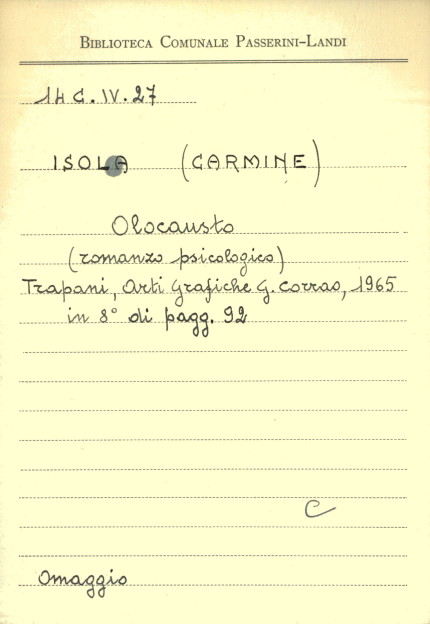 BIBLIOTECA COMUNALE PASSERINI-LANDI
14 C. IV. 27
ISOLA (CARMINE)
Olocausto
(romanzo psicologico)
Trapani, Arti Grafiche G. Corrao, 1965
in 8° di pagg. 92
C
Omaggio